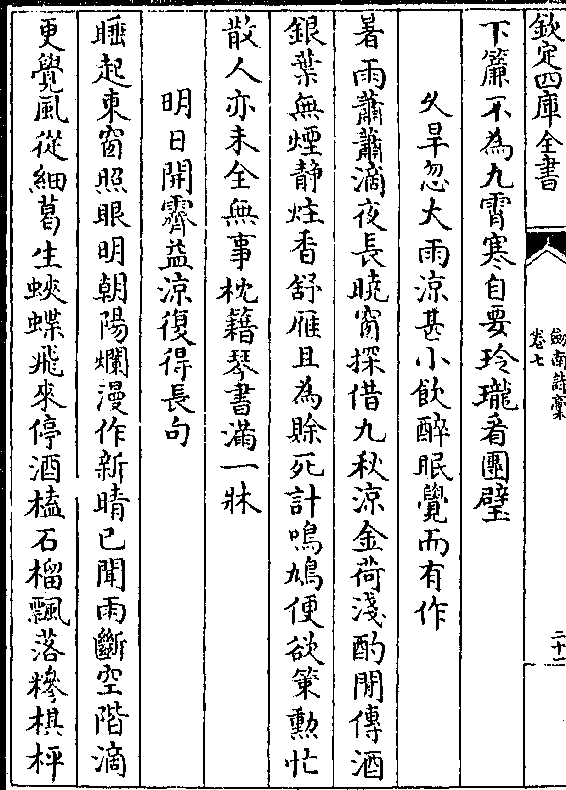 欽定四庫全書
劍南詩稾
卷七
二十一
下簾不為九霄寒自要玲瓏看團璧
久旱忽大雨涼甚小飲醉眠覺而有作
暑雨蕭蕭滴夜長曉窗探借九秋涼金荷淺酌閒傳酒
銀葉無煙静炷香舒雁且為賖死計鳴鳩便欲策勲忙
散人亦未全無事枕籍琴書滿一牀
明日開霽益涼復得長句
睡起東窗照眼明朝陽爛漫作新晴已聞雨斷空階滴
更覺風從細葛生蛺蝶飛來停酒榼石榴飄落糝棋枰